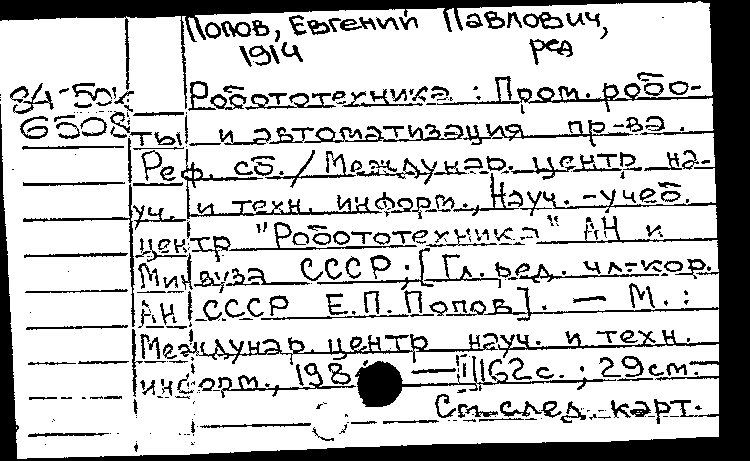 Попов, Евгений Павлович,
1914 ред
84-50к Робототехника : Пром. робо-
6508 ты и автоматизация пр-ва.
Реф. сб. / Междунар. центр на-
уч. и техн. информ., Науч.-учеб.
центр "Робототехника" АН и
Минвуза СССР ; [Гл. ред. чл-кор.
АН СССР Е.П. Попов]. — М. :
Междунар. центр науч. и техн.
информ., 198 — 162 с. ; 29 см. —
См. след. карт.